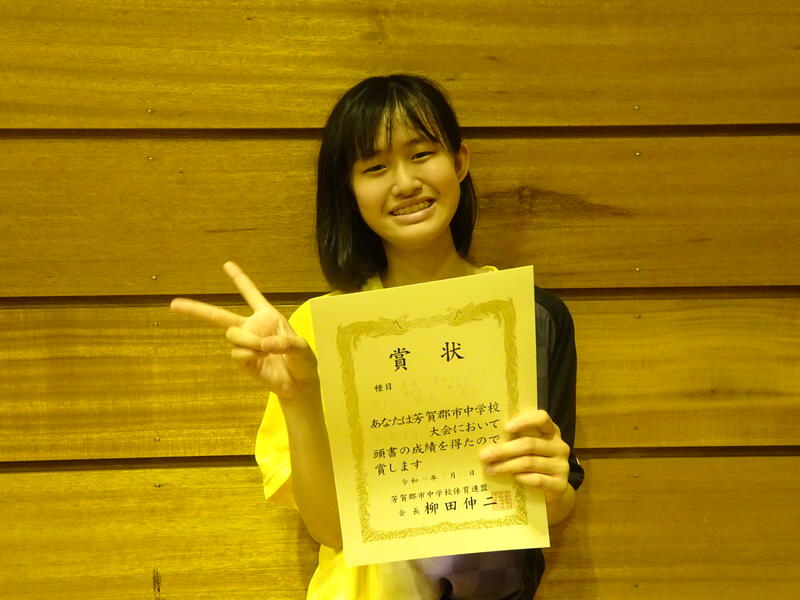 賞状
種目
あなたは芳賀郡市中学校
大会において
頭書の成績を得たので
賞します
令和 年 月 日
芳賀郡市中学校体育連盟
会長 柳田伸二